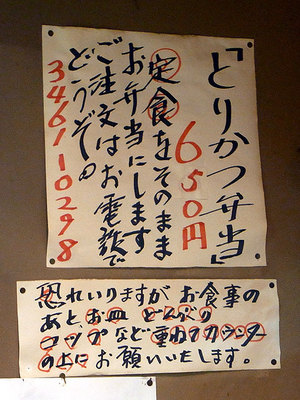 「とりかつ弁当」
650円
定食をそのまま
お弁当にします
ご注文はお電話で
どうぞの
3461-0298
恐れいりますが お食事の
あと、お皿 どんぶり
コップなど重ねてカウンター
の上にお願いいたします。